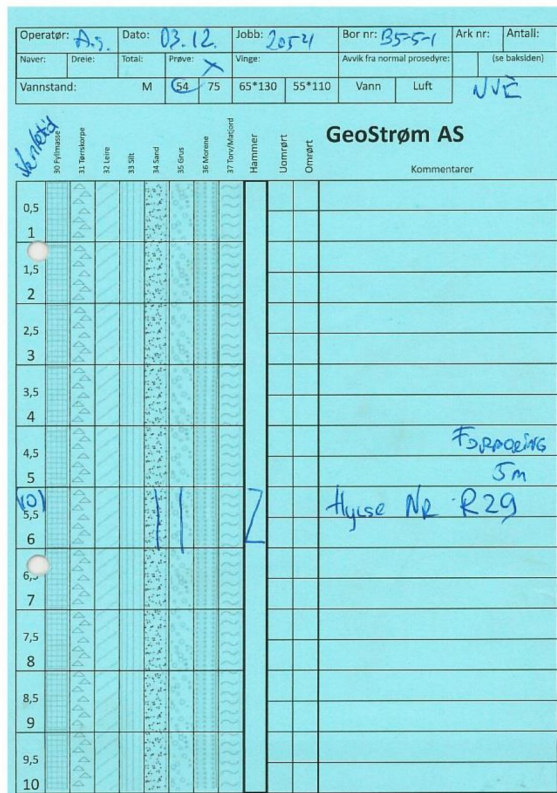 Operatør: A.g. Dato: 03.12. Jobb: 2054 Bor nr: B5-5-1 Ark nr: Antall:
Naver: Dreie: Total: Prøve: X Vinge: Avvik fra normal prosedyre: (se baksiden)
Vannstand: M 54 75 65*130 55*110 Vann Luft NVE
GeoStrøm AS
30 Fyllmasse 31 Tørrskorpe 32 Leire 33 Silt 34 Sand 35 Grus 36 Morene 37 Torv/Matjord Hammer Uomrørt Omrørt Kommentarer
0,5
1
1,5
2
2,5
3
3,5
4
4,5
5
Foraoring
5m
(0)
5,5 Hylse NR R29
6
6,5
7
7,5
8
8,5
9
9,5
10